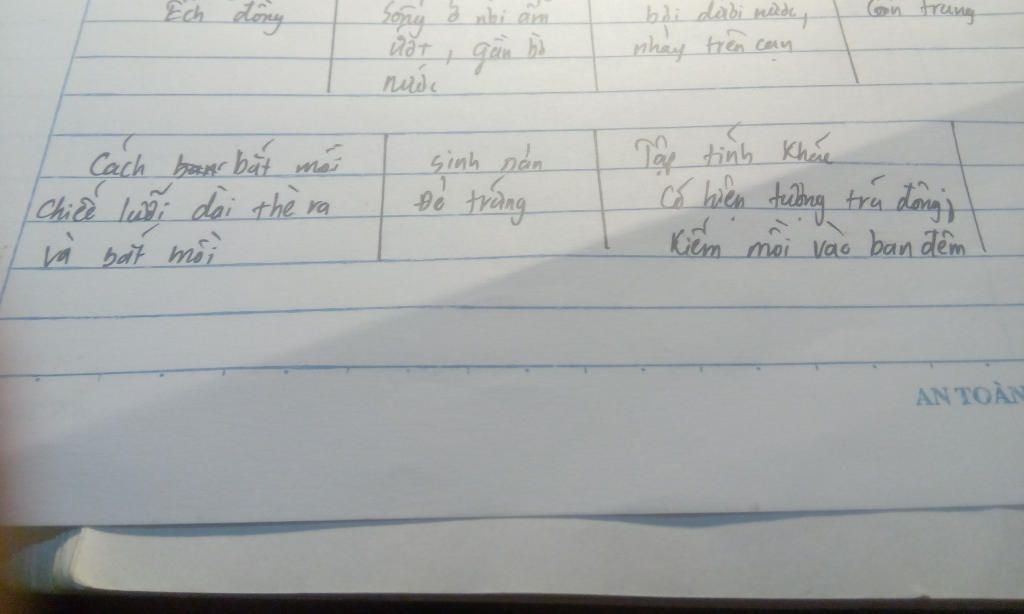 Ếch đồng
sống ở nơi ẩm
ướt, gần bờ
nước
bơi dưới nước,
nhảy trên cạn
Côn trùng
Cách bắt mồi
chiếc lưỡi dài thè ra
và bắt mồi
sinh sản
Đẻ trứng
Tập tính khác
Có hiện tượng trú đông;
Kiếm mồi vào ban đêm
AN TOÀN